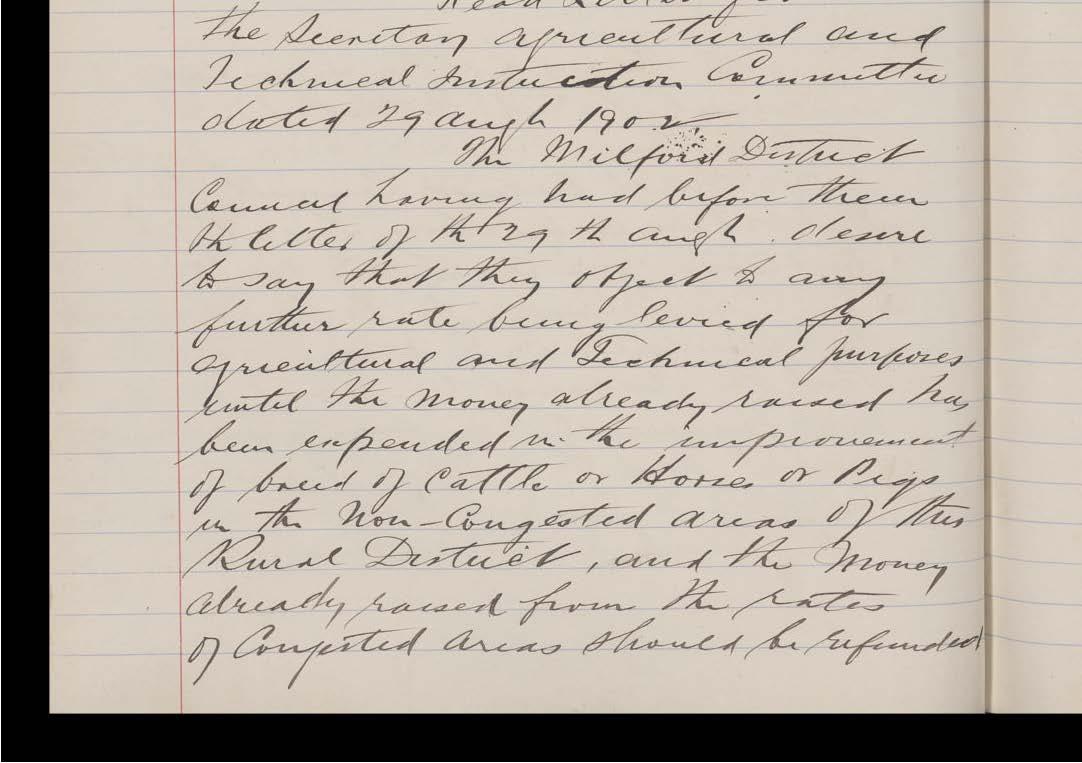 Read Letter from
the Secretary Agricultural and
Technical Instruction Committee
dated 29 Augh 1902
The Milford District
Council having had before them
the letter of the 29th Augh. desire
to say that they object to any
further rate being levied for
Agricultural and Technical purposes
until the money already raised has
been expended in the improvement
of breed of Cattle or Horses or Pigs
in the Non-Congested areas of this
Rural District, and the money
already raised from the rates
of Congested areas should be refunded